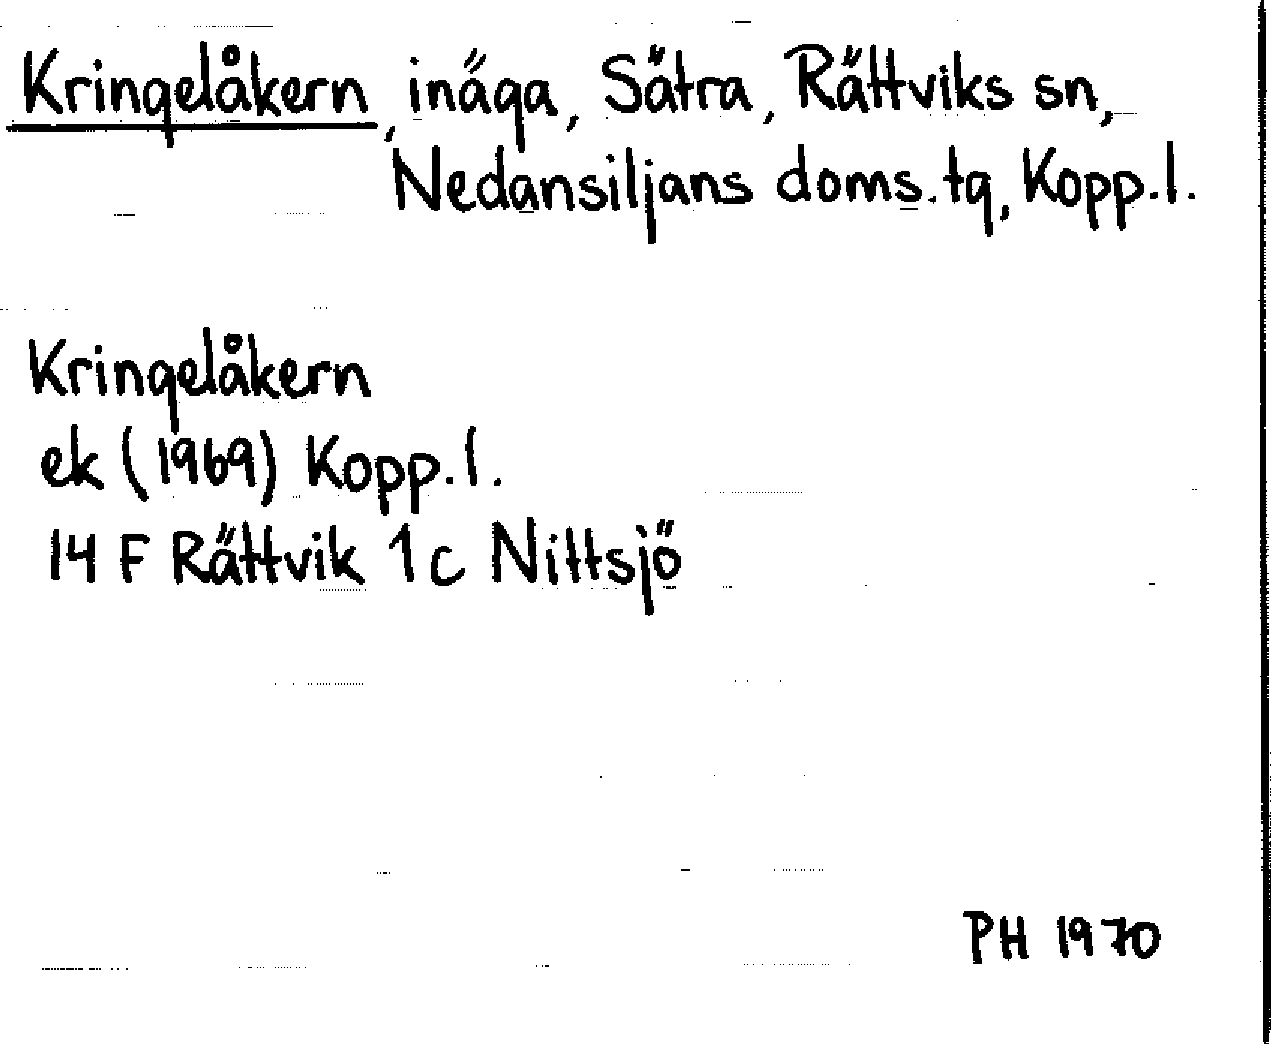 Kringelåkern, inäga, Sätra, Rättviks sn,
Nedansiljans doms.tg, Kopp.l.
Kringelåkern
ek (1969) Kopp.l.
14 F Rättvik 1c Nittsjö
PH 1970